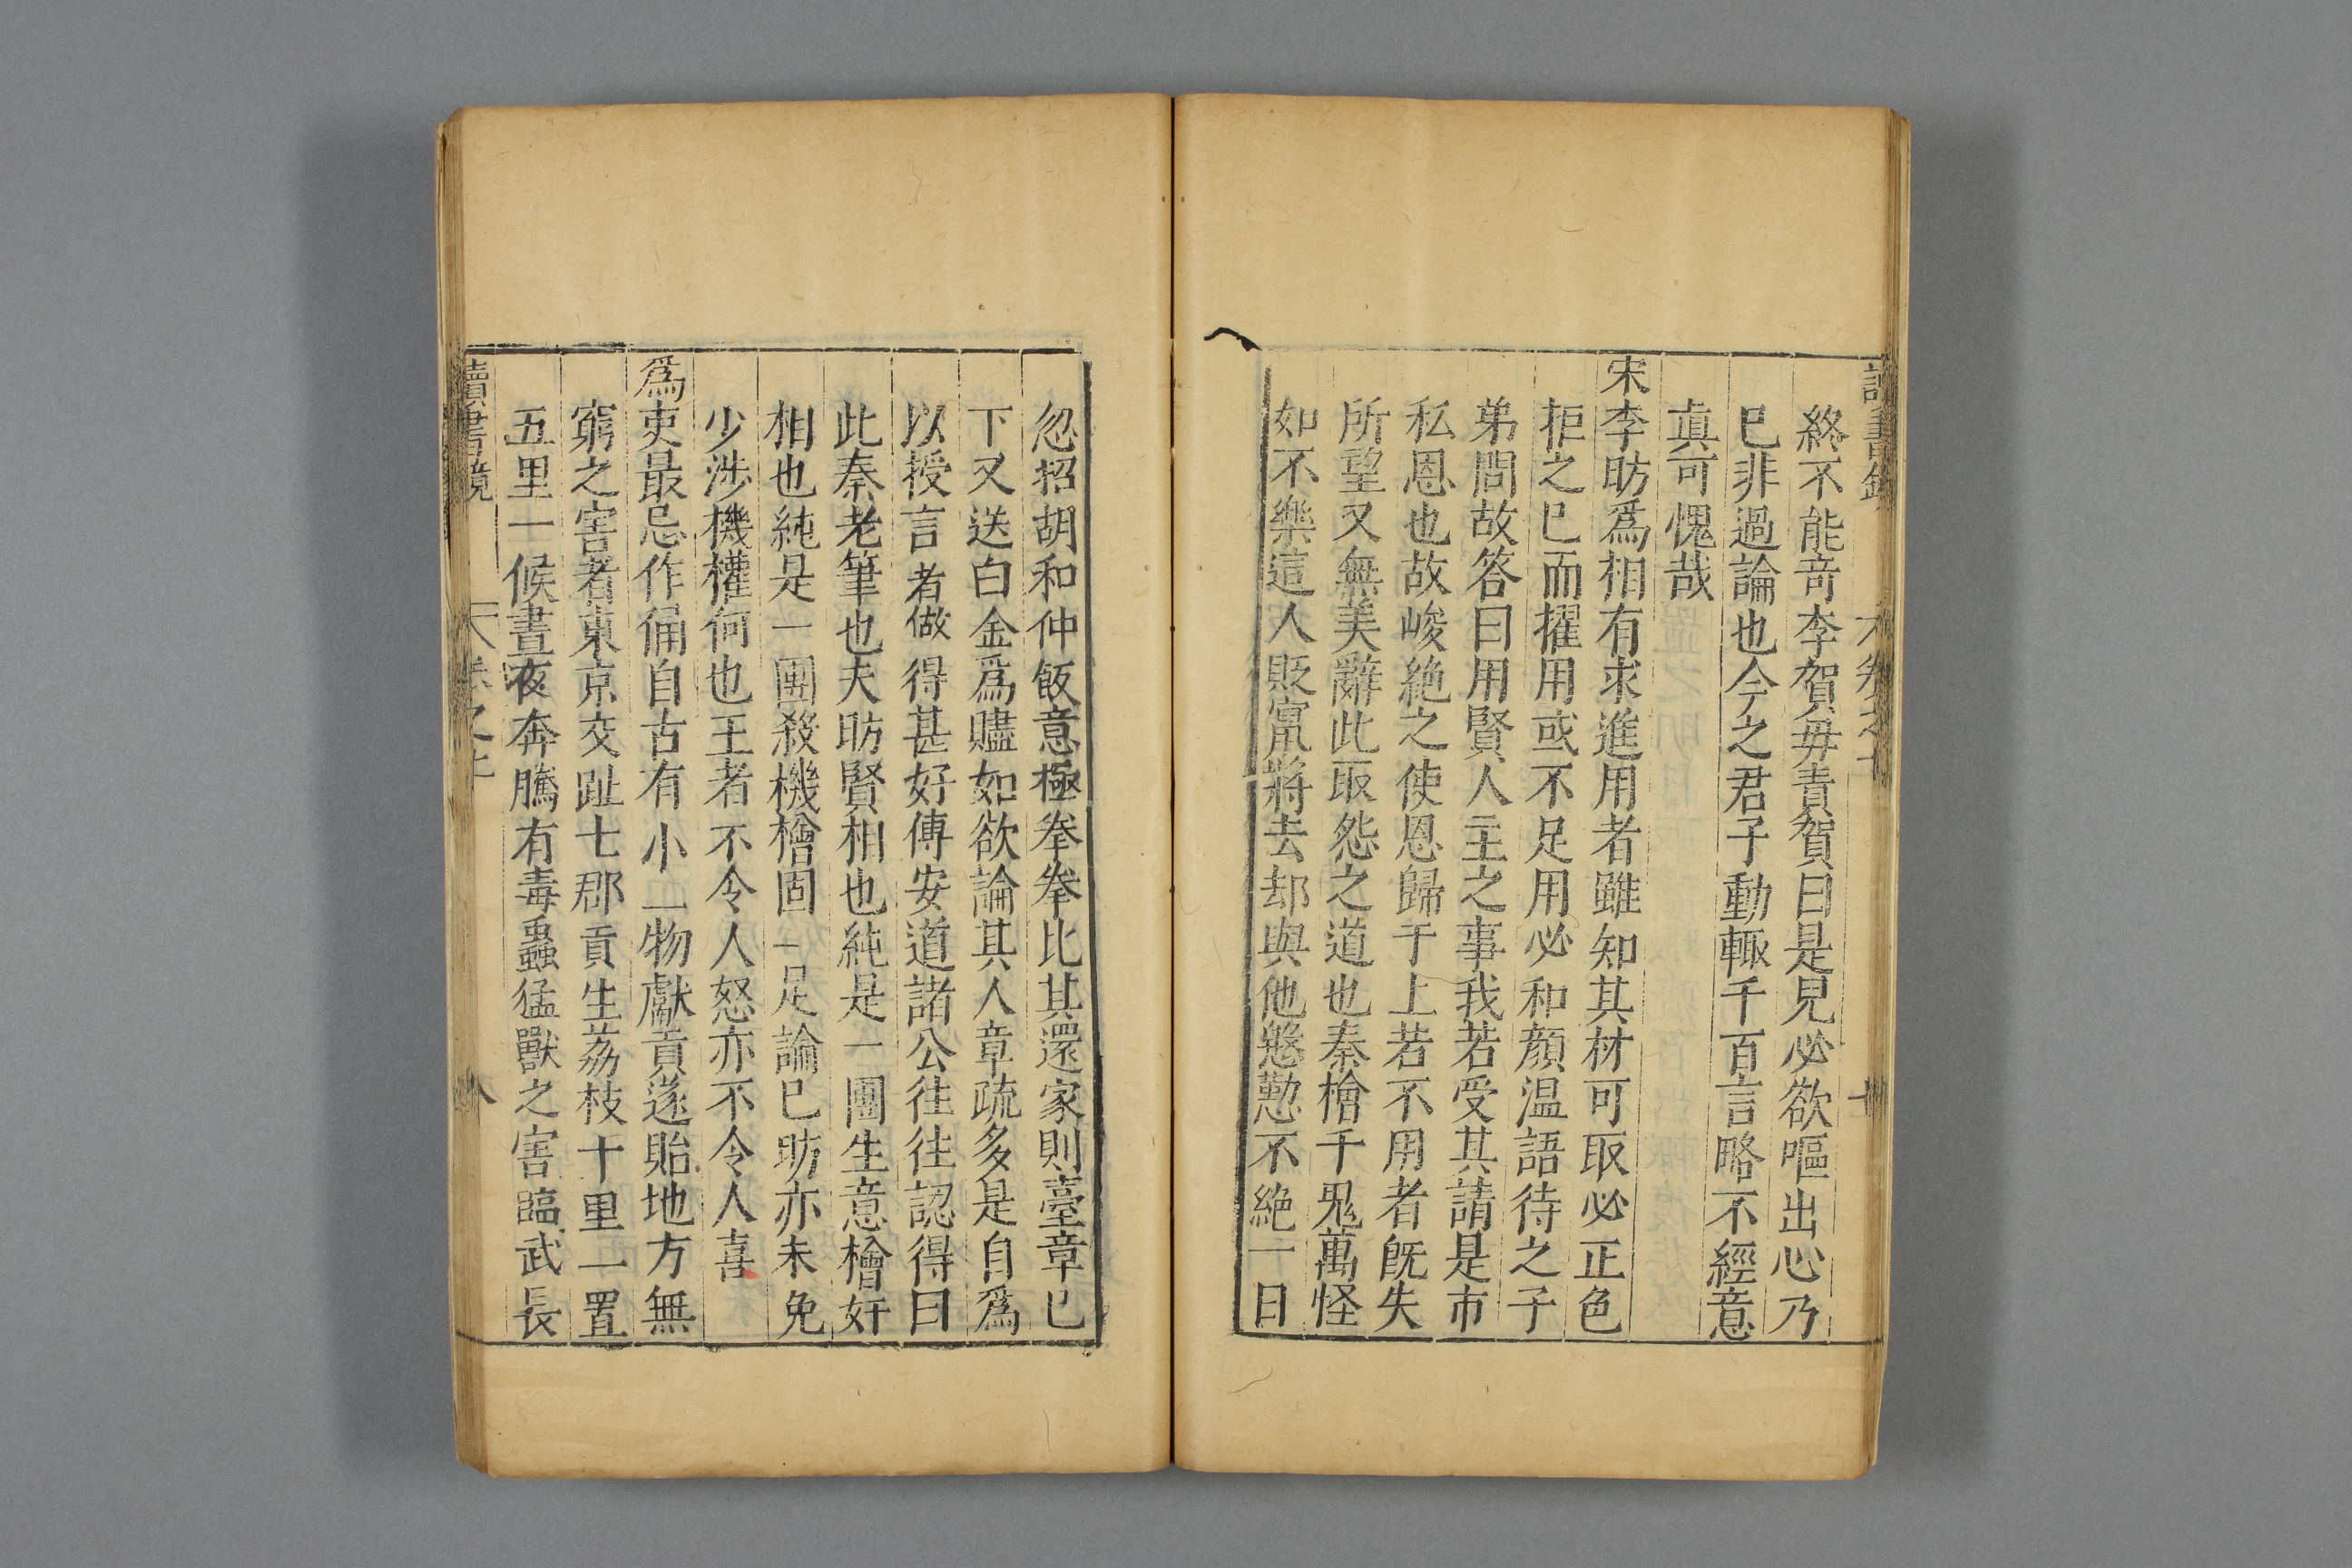 終不能竒李賀毋責賀曰是見必欲嘔出心乃
已非過論也今之君子動輒千百言略不經意
真可愧哉
宋李昉爲相有求進用者雖知其材可取必正色
拒之已而擢用或不足用必和顔温語待之子
弟問故答曰用賢人主之事我若受其請是市
私恩也故峻絶之使恩歸于上若不用者旣失
所望又無美辭此取怨之道也秦檜千鬼萬怪
如不樂這人貶竄將去却與他慇懃不絶一日
忽招胡和仲飯意極拳拳比其還家則臺章已
下又送白金爲贐如欲論其人章疏多是自爲
以授言者做得甚好傅安道諸公往往認得曰
此秦老筆也夫昉賢相也純是一團生意檜奸
相也純是一團殺機檜固
足論已昉亦未免
少涉機權何也王者不令人怒亦不令人喜
爲吏最忌作俑自古有小一物獻貢遂貽地方無
窮之害者東京交趾七郡貢生荔枝十里一置
五里一候晝夜奔騰有毒蟲猛獸之害臨武長
讀書鏡
卷之
八